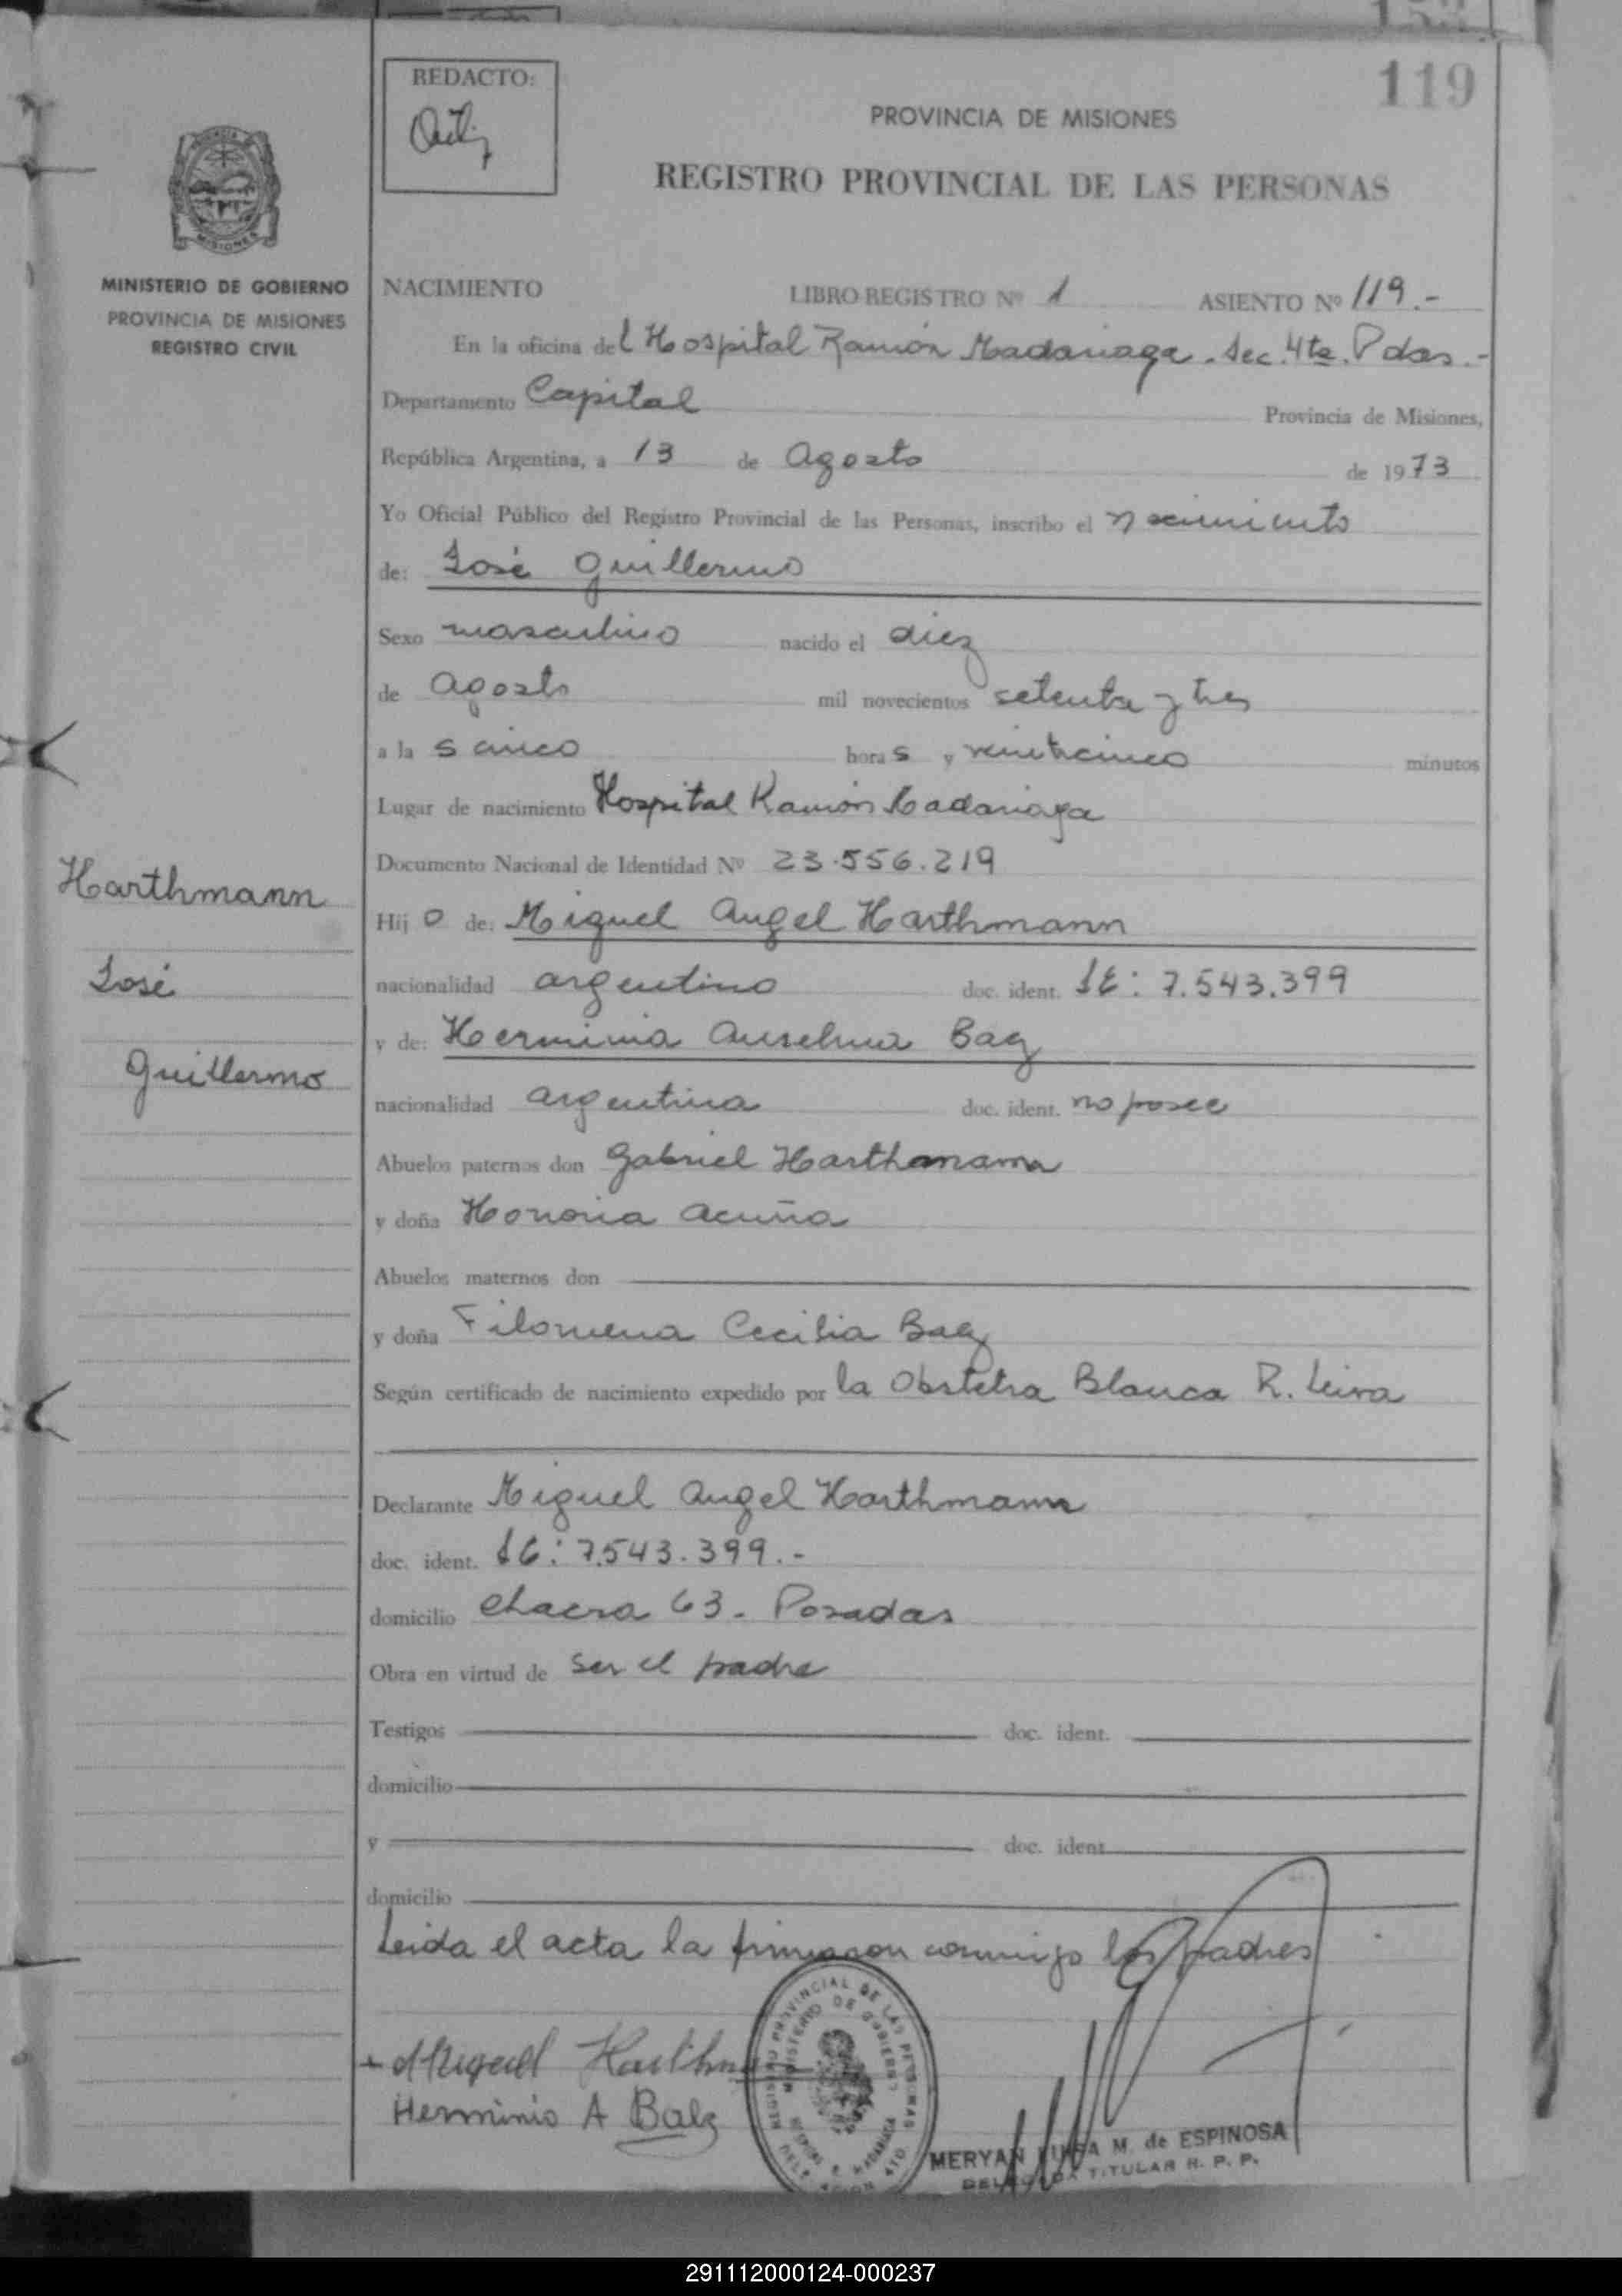 119
REDACTO:
PROVINCIA DE MISIONES
REGISTRO PROVINCIAL DE LAS PERSONAS
MISIONES
MINISTERIO DE GOBIERNO
PROVINCIA DE MISIONES
REGISTRO CIVIL
NACIMIENTO LIBRO REGISTRO Nº 1 ASIENTO Nº 119.-
En la oficina del Hospital Ramón Madariaga. Sec. 4ta. Pdas.-
Departamento Capital Provincia de Misiones,
República Argentina, a 13 de Agosto de 1973
Yo Oficial Público del Registro Provincial de las Personas, inscribo el nacimiento
de: José Guillermo
Sexo masculino nacido el diez
de agosto mil novecientos setenta y tres
a la s cinco hora s y veinticinco minutos
Lugar de nacimiento Hospital Ramón Madariaga
Documento Nacional de Identidad Nº 23.556.219
Harthmann
José
Guillermo
Hij o de: Miguel Angel Harthmann
nacionalidad argentino doc. ident. LE: 7.543.399
y de: Herminia Anselma Baez
nacionalidad argentina doc. ident. no posee
Abuelos paternos don Gabriel Harthmann
y doña Honoria Acuña
Abuelos maternos don
y doña Filomena Cecilia Baez
Según certificado de nacimiento expedido por la Obstetra Blanca R. Leiva
Declarante Miguel Angel Harthmann
doc. ident. LE: 7.543.399.-
domicilio Chacra 63 - Posadas
Obra en virtud de ser el padre
Testigos doc. ident.
domicilio
y doc. ident.
domicilio
Leida el acta la firmaron conmigo los padres
Miguel Harthm
Herminia A Baez
REGISTRO PROVINCIAL DE LAS PERSONAS
MINISTERIO DE GOBIERNO
MERYAN LUISA M. de ESPINOSA
DELEGADA TITULAR R. P. P.
291112000124-000237